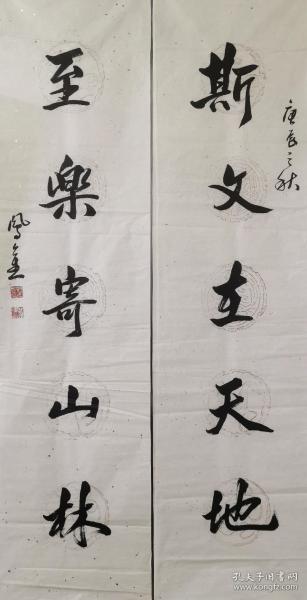 庚辰之秋
斯文在天地
至樂寄山林
鳳奎
孔夫子旧书网